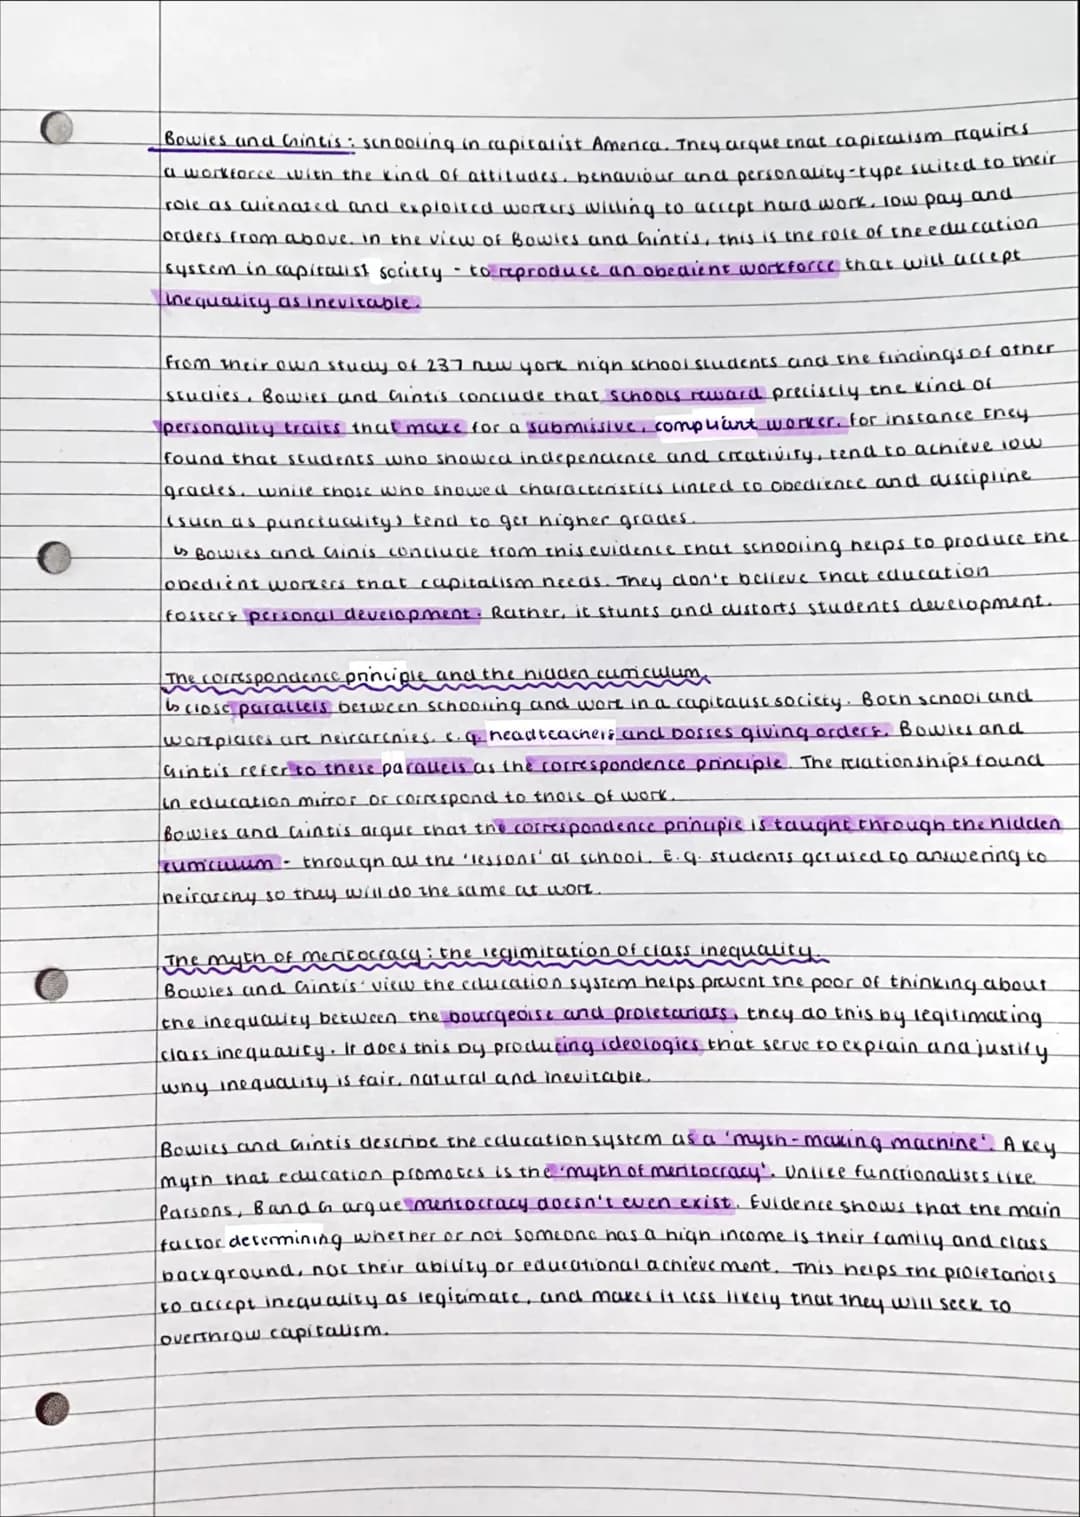 Bowles and Gintis: schooling in capitalist America. They argue that capitalism requires
a workforce with the kind of attitudes, behaviour and personality-type suited to their
role as alienated and exploited workers willing to accept hard work, low pay and
orders from above. In the view of Bowles and Gintis, this is the role of the education
system in capitalist society - to reproduce an obedient workforce that will accept
inequality as inevitable.
From their own study of 237 new york high school students and the findings of other
studies, Bowles and Gintis conclude that schools reward precisely the kind of
personality traits that make for a submissive, compliant worker. for instance they
found that students who showed independence and creativity, tend to achieve low
grades, while those who showed characteristics linked to obedience and discipline
(such as punctuality) tend to get higher grades.
↳ Bowles and Ginis conclude from this evidence that schooling helps to produce the
obedient workers that capitalism needs. They don't believe that education
fosters personal development. Rather, it stunts and distorts students development.
The correspondence principle and the hidden curriculum
↳ close parallels between schooling and work in a capitalist society. Both school and
workplaces are heirarchies, e.g. headteachers and bosses giving orders. Bowles and
Gintis refer to these parallels as the correspondence principle. The relationships found
in education mirror or correspond to those of work.
Bowles and Gintis argue that the correspondence principle is taught through the hidden
curriculum - through all the 'lessons' at school. E.g. students get used to answering to
heirarchy so they will do the same at work.
The myth of meritocracy: the legimitation of class inequality.
Bowles and Gintis' view the education system helps prevent the poor of thinking about
the inequality between the bourgeoise and proletariats, they do this by legitimating
class inequality. It does this by producing ideologies that serve to explain and justify
why inequality is fair, natural and inevitable.
Bowles and Gintis describe the education system as a 'myth-making machine'. A key
myth that education promotes is the 'myth of meritocracy'. Unlike functionalists like
Parsons, B and G argue meritocracy doesn't even exist. Evidence shows that the main
factor determining whether or not someone has a high income is their family and class
background, not their ability or educational achievement. This helps the proletariats
to accept inequality as legitimate, and makes it less likely that they will seek to
overthrow capitalism.